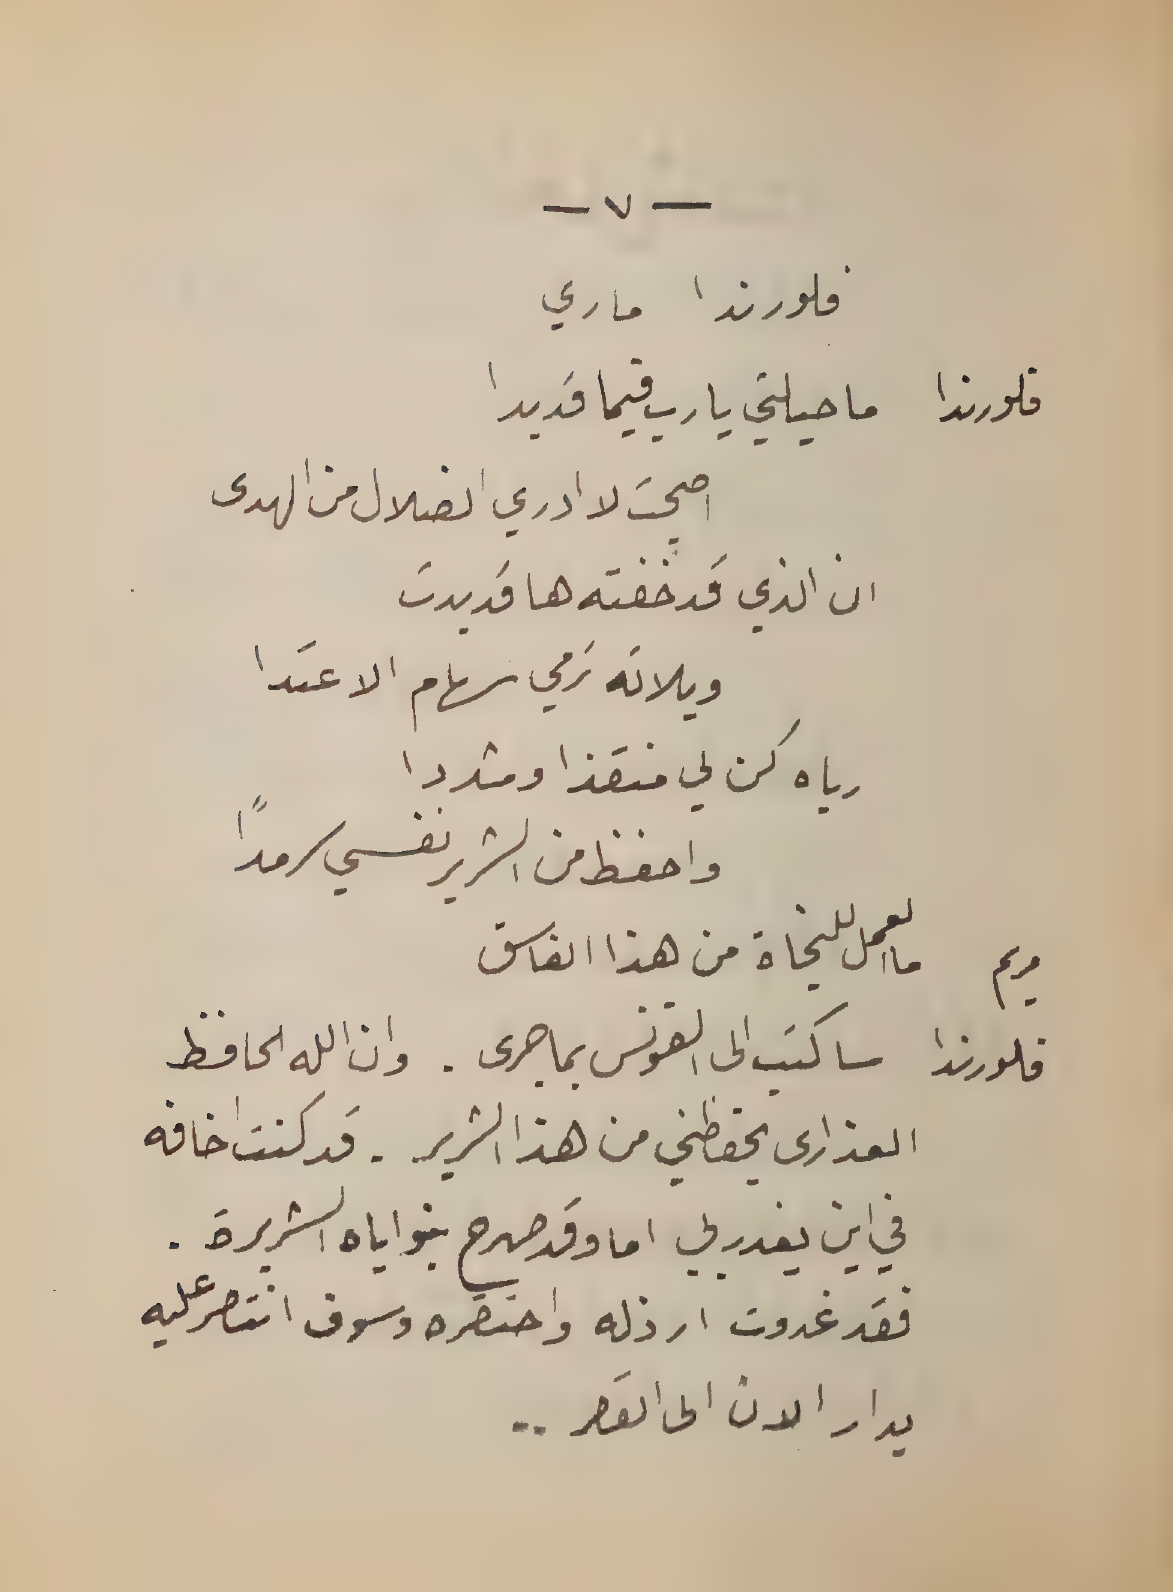 — ٧ —
فلورندا ماري
فلورندا ما حيلتي يا رب فيما قد بدا
اصبحت لا ادري الضلال من الهدى
ان الذي قد خفته ها قد بدت
ويلاته ترمي سهام الاعتدا
رباه كن لي منقذا ومشددا
واحفظ من الشرير نفسي سرمداً
مريم ما العمل للنجاة من هذا الفاسق
فلورندا ساكتب الى القونس بما جرى . وان الله الحافظ
العذارى يحفظني من هذا الشرير . . قد كنت اخافه
في اين يغدر بي اما وقد صرح بنواياه الشريرة .
فقد غدوت ارذله واحتقره وسوف انتصر عليه
بدار الان الى القصر ..